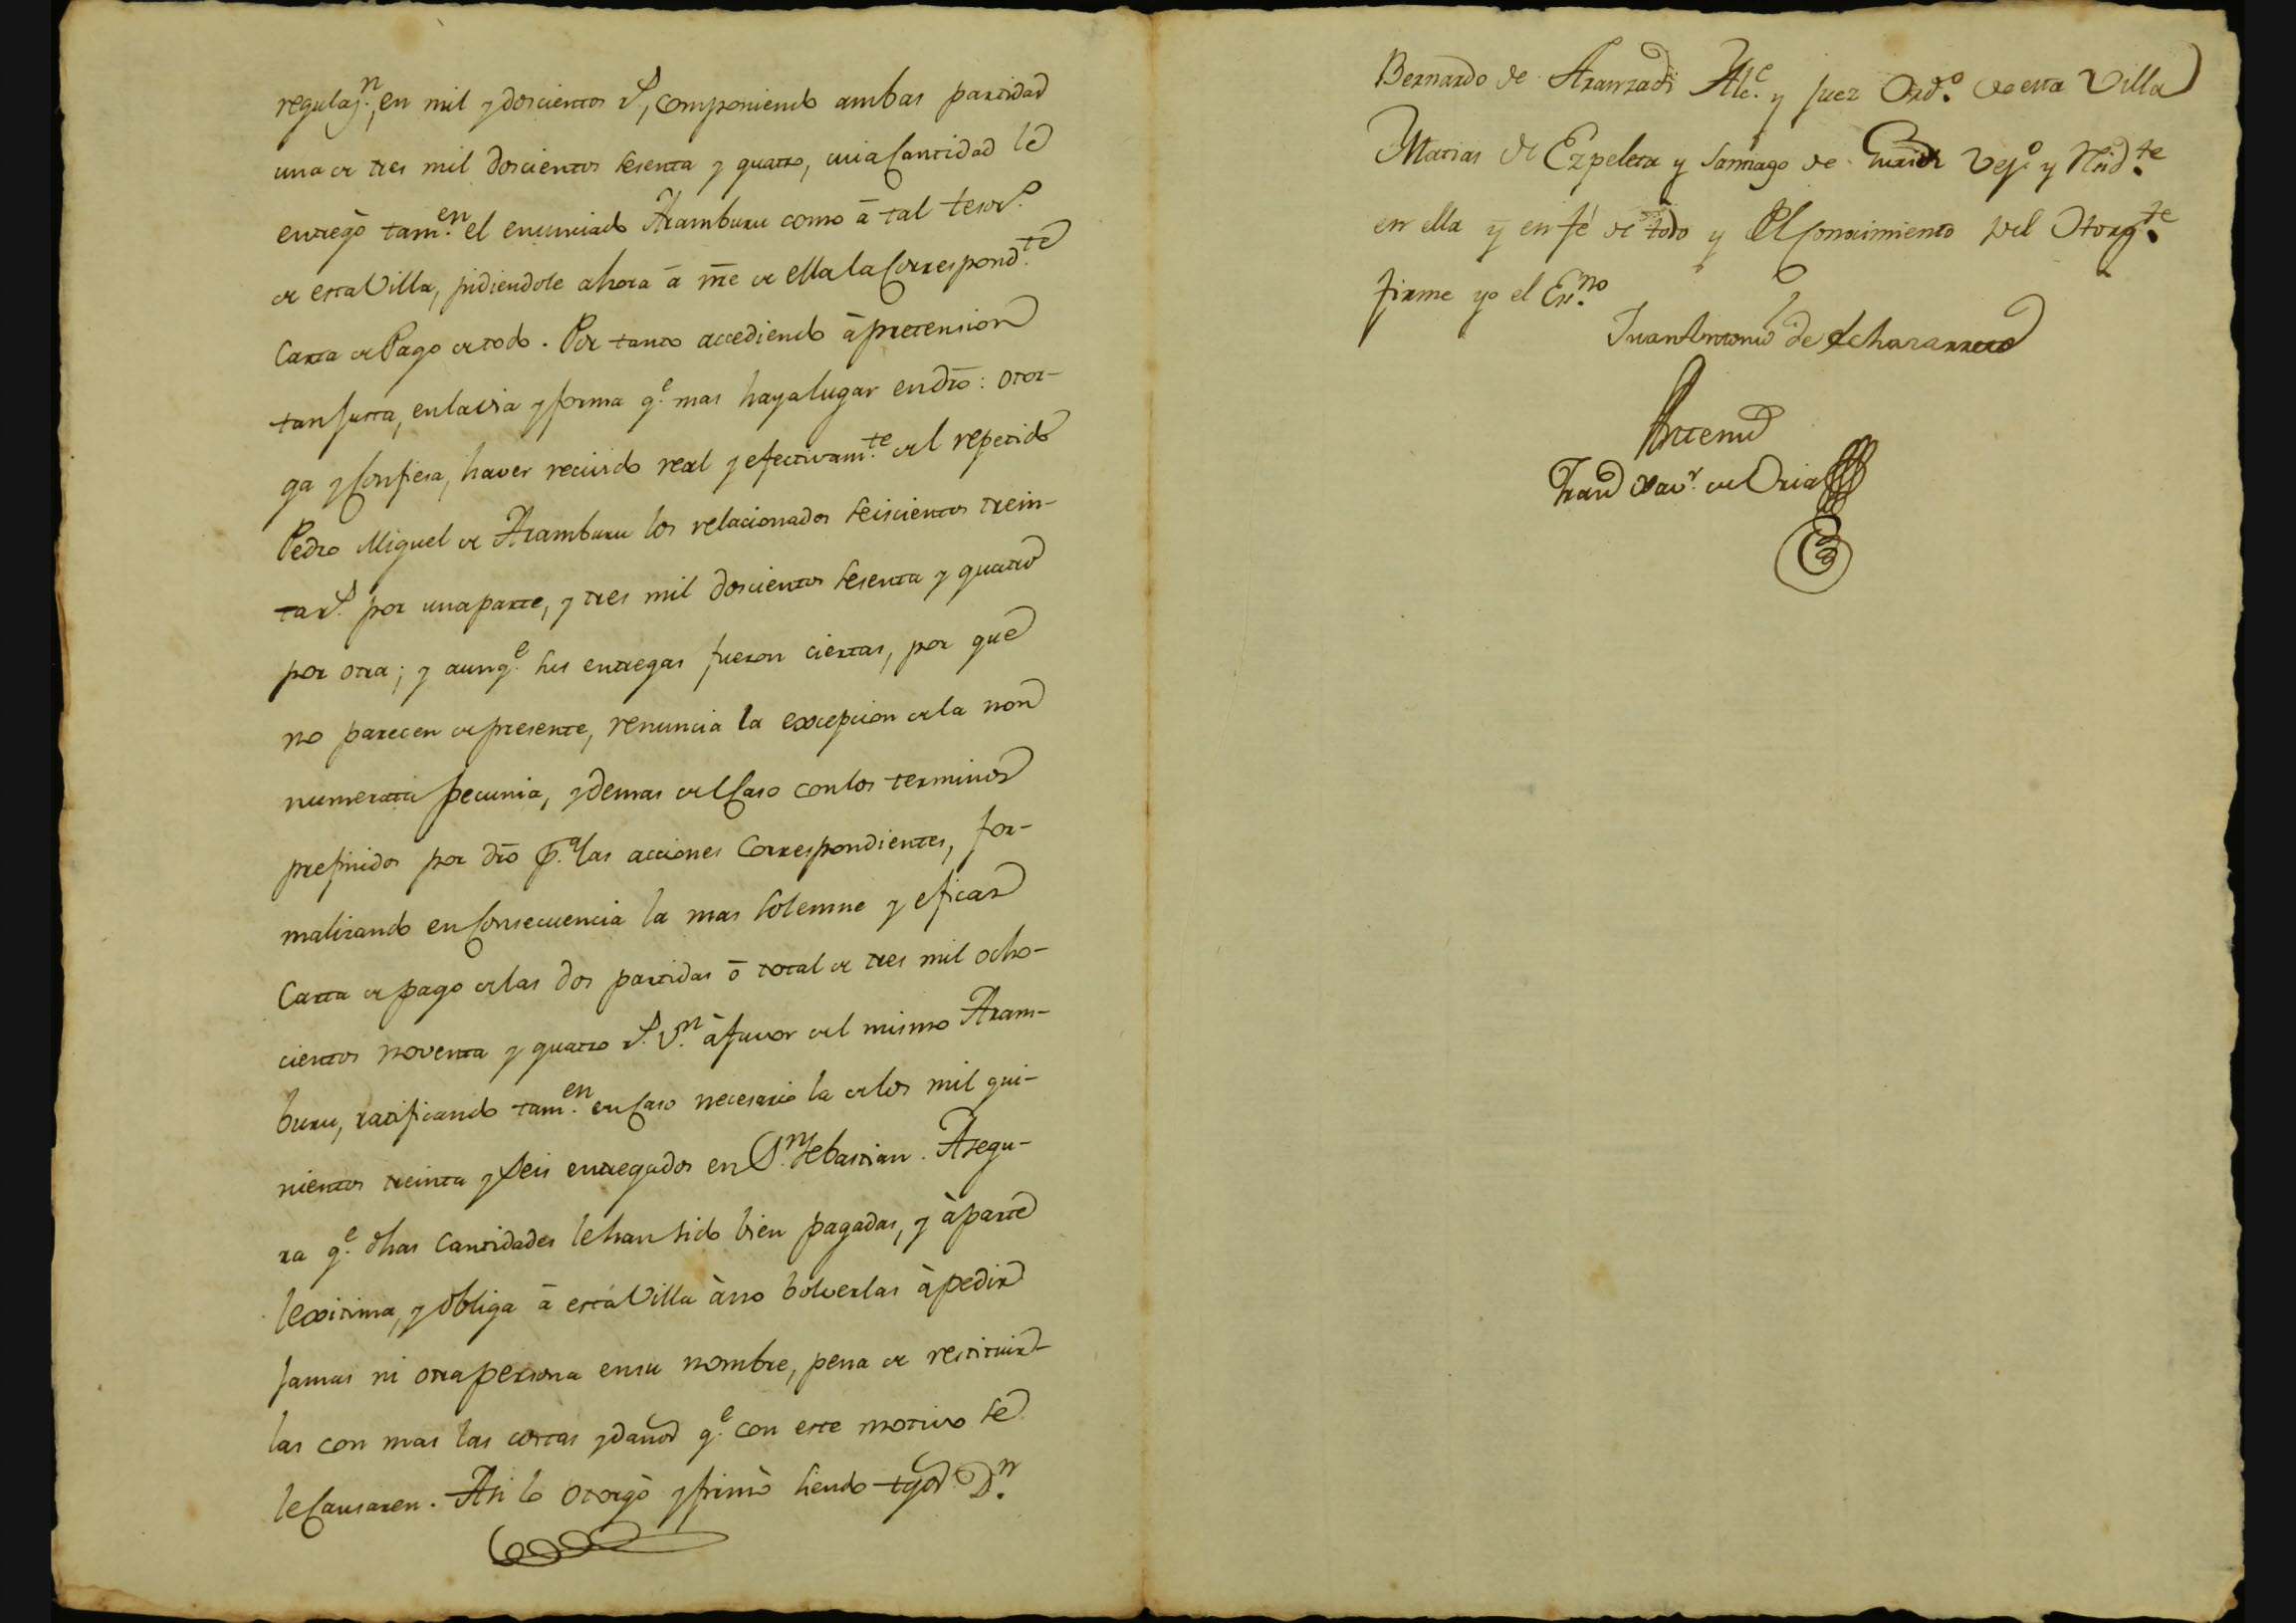 regulaz.n, en mil y doscientos r.s, componiendo ambas partidas
una de tres mil doscientos sesenta y quatro, cuia Cantidad le
entregò tam.en el enunciado Aramburu como â tal tesor.o
de esta Villa, pidiendole ahora â me de ella la Correspond.te
Carta de Pago de todo. Por tanto accediendo à pretension
tan justa, en la via y forma q.e mas haya lugar en dro: otor-
ga y Confiesa, haver recivido real y efectivam.te del repetido
Pedro Miguel de Aramburu los relacionados seiscientos trein-
ta r.s por una parte, y tres mil doscientos sesenta y quatro
por otra; y aunq.e sus entregas fueron ciertas, por que
no parecen de presente, renuncia la excepcion de la non
numerata pecunia, y demas del Caso con los terminos
prefinidos por dro p.a las acciones Correspondientes, for-
malizando en Consecuencia la mas solemne y eficaz
Carta de pago de las dos partidas ô total de tres mil ocho-
cientos noventa y quatro r.s v.n à favor del mismo Aram-
buru, ratificando tam.en en Caso necesario la de los mil qui-
nientos treinta y seis entregados en S.n Sebastian. Asegu-
ra q.e dhas Cantidades le han sido bien pagadas, y à parte
lexitima, y obliga â esta Villa à no bolverlas à pedir
jamas ni otra persona en su nombre, pena de restituir-
las con mas las costas y daños q.e con este motivo se
le Causaren. Asi lo otorgò y firmò siendo tgos D.n
Bernardo de Aranzadi Alc.e y Juez Ord.o de esta Villa
Matias de Ezpeleta y Santiago de Vez.s y Resid.te
en ella y en fé de todo y El Conocimiento del Otorg.te
firme yo el Es.no
Juan Antonio de Echazarreta
Antemi
Fran.co Xav.r de Oria